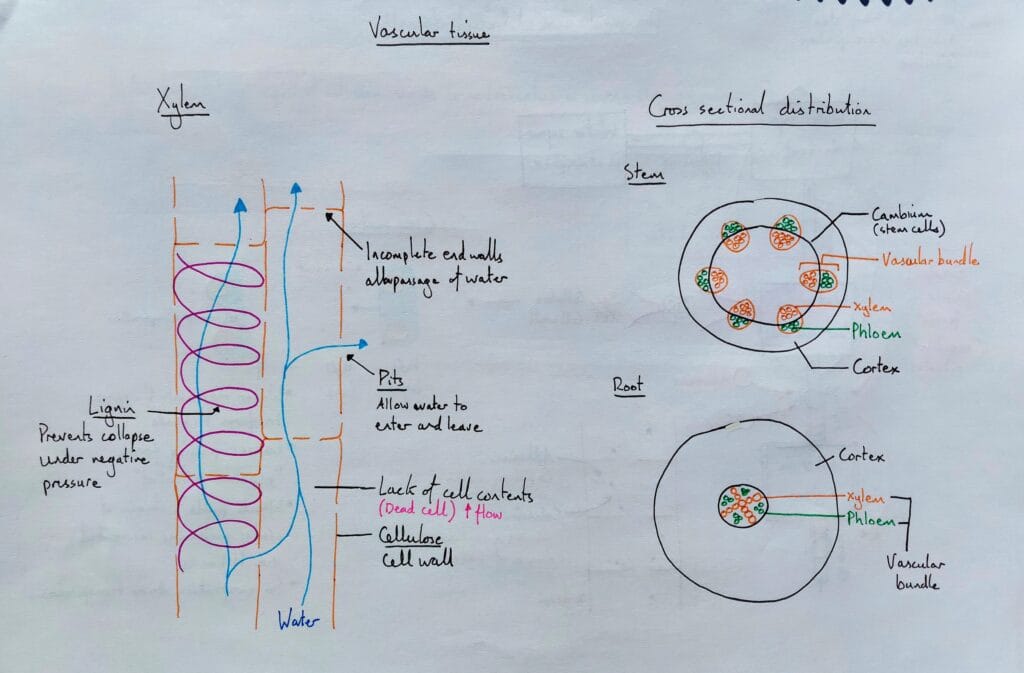 Vascular tissue
Xylem
Incomplete end walls
allow passage of water
Pits
Allow water to
enter and leave
Lignin
Prevents collapse
under negative
pressure
Lack of cell contents
(Dead cell) ↑ flow
Cellulose
Cell wall
Water
Cross sectional distribution
Stem
Cambium
(stem cells)
Vascular bundle
Xylem
Phloem
Cortex
Root
Cortex
Xylem
Phloem
Vascular
bundle